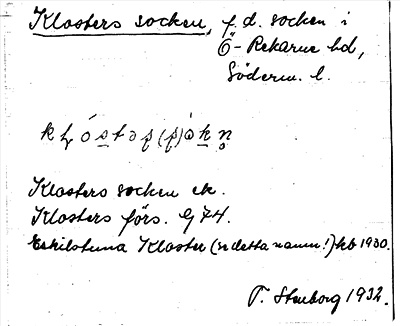 Klosters socken, f.d. socken i
Ö-Rekarne hd,
Söderm. l.
Klosters socken ek.
Klosters förs. GJ 74.
Eskilstuna Kloster (se detta namn!) kb 1930.
T. Stenborg 1932.